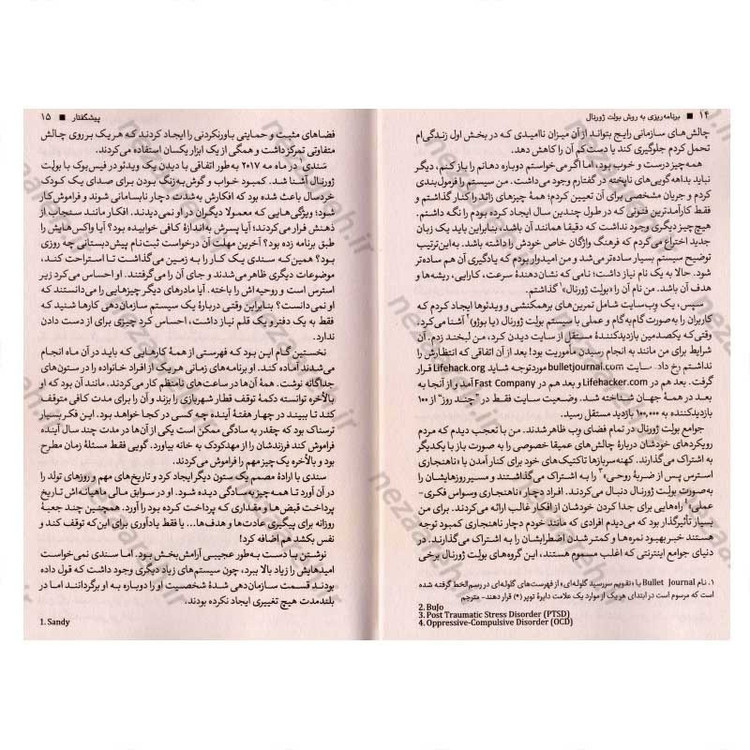 ۱۴ ■ برنامه‌ریزی به روش بولت ژورنال
چالش‌های سازمانی رایج بتواند از آن میزان ناامیدی که در بخش اول زندگی‌ام
تحمل کردم جلوگیری کند یا دست‌کم آن را کاهش دهد.
همه‌چیز درست و خوب بود، اما اگر می‌خواستم دوباره دهانم را باز کنم، دیگر
نباید بداهه‌گویی‌های ناپخته در گفتارم وجود می‌داشت. من سیستم را فرمول‌بندی
کردم و جریان مشخصی برای آن تعیین کردم؛ همهٔ چیزهای زائد را کنار گذاشتم و
فقط کارآمدترین فنونی که در طول چندین سال ایجاد کرده بودم را نگه داشتم.
هیچ چیز دیگری وجود نداشت که دقیقا همانند آن باشد، بنابراین باید یک زبان
جدید اختراع می‌کردم که فرهنگ واژگان خاص خودش را داشته باشد. به‌این‌ترتیب
توضیح سیستم بسیار ساده‌تر می‌شد و من امیدوار بودم که یادگیری آن هم ساده‌تر
شود. حالا به یک نام نیاز داشت؛ نامی که نشان‌دهندهٔ سرعت، کارایی، ریشه‌ها و
هدف آن باشد. من نام آن را «بولت ژورنال»۱ گذاشتم.
سپس، یک وب‌سایت شامل تمرین‌های برهمکنشی و ویدئوها ایجاد کردم که
کاربران را به‌صورت گام‌به‌گام و عملی با سیستم بولت ژورنال (یا بوژو)۲ آشنا می‌کرد.
وقتی که یکصدمین بازدیدکنندهٔ مستقل از سایت دیدن کرد، من لبخند زدم. آن
شرایط برای من مانند به انجام رسیدن مأموریت بود! بعد از آن اتفاقی که انتظارش را
نداشتم رخ داد. سایت bulletjournal.com موردتوجه شاید Lifehack.org قرار
گرفت. بعد هم در Lifehacker.com و بعد هم در Fast Company آمد و از آنجا به
بعد در همهٔ جهان شناخته شد. وضعیت سایت فقط در "چند روز" از ۱۰۰
بازدیدکننده به ۱۰۰,۰۰۰ بازدید مستقل رسید.
جوامع بولت ژورنال در تمام فضای وب ظاهر شدند. من با تعجب دیدم که مردم
رویکردهای خودشان دربارهٔ چالش‌های عمیقا خصوصی را به صورت باز با یکدیگر
به اشتراک می‌گذارند. کهنه‌سربازها تاکتیک‌های خود برای کنار آمدن با «ناهنجاری
استرس پس از ضربهٔ روحی»۳ را به اشتراک می‌گذاشتند و مسیر روزهایشان را
به‌صورت بولت ژورنال دنبال می‌کردند. افراد دچار «ناهنجاری وسواس فکری-
عملی»۴ راه‌هایی برای جدا کردن خودشان از افکار غالب ارائه می‌کردند. برای من
بسیار تأثیرگذار بود که می‌دیدم افرادی که مانند خودم دچار ناهنجاری کمبود توجه
هستند خبر بهبود نمره‌ها و کمتر شدن اضطرابشان را به اشتراک می‌گذارند. در
دنیای جوامع اینترنتی که اغلب مسموم هستند، این گروه‌های بولت ژورنال برخی
۱. نام Bullet Journal یا «تقویم سررسید گلوله‌ای» از فهرست‌های گلوله‌ای در رسم‌الخط گرفته شده
است که مرسوم است در ابتدای هر یک از موارد یک علامت دایرهٔ توپر (•) قرار دهند- مترجم
2. BuJo
3. Post Traumatic Stress Disorder (PTSD)
4. Oppressive-Compulsive Disorder (OCD)
پیشگفتار ■ ۱۵
فضاهای مثبت و حمایتی باورنکردنی را ایجاد کردند که هر یک بر روی چالش
متفاوتی تمرکز داشت و همگی از یک ابزار یکسان استفاده می‌کردند.
سَندی۱ در ماه مه ۲۰۱۷ به‌طور اتفاقی با دیدن یک ویدئو در فیس‌بوک با بولت
ژورنال آشنا شد. کمبود خواب و گوش‌به‌زنگ بودن برای صدای یک کودک
خردسال باعث شده بود که افکارش به‌شدت دچار نابسامانی شوند و فراموش‌کار
شود؛ ویژگی‌هایی که معمولا دیگران در او نمی‌دیدند. افکار مانند سنجاب از
ذهنش فرار می‌کردند؛ آیا پسرش به‌اندازهٔ کافی خوابیده بود؟ آیا واکس‌هایش را
طبق برنامه زده بود؟ آخرین مهلت آن درخواست ثبت‌نام پیش‌دبستانی چه روزی
بود؟ همین‌که سندی یک کار را به زمین می‌گذاشت تا استراحت کند،
موضوعات دیگری ظاهر می‌شدند و جای آن را می‌گرفتند. او احساس می‌کرد زیر
استرس است و روحیه‌اش را باخته. آیا مادرهای دیگر چیزهایی را می‌دانستند که
او نمی‌دانست؟ بنابراین وقتی دربارهٔ یک سیستم سازمان‌دهی کارها شنید که
فقط به یک دفتر و یک قلم نیاز داشت، احساس کرد چیزی برای از دست دادن
ندارد.
نخستین گام این بود که فهرستی از همهٔ کارهایی که باید در آن ماه انجام
می‌شدند آماده کند. او برنامه‌های زمانی هر یک از افراد خانواده را در ستون‌های
جداگانه نوشت. همهٔ آن‌ها در ساعت‌های نامنظم کار می‌کردند. مانند آن بود که او
بالأخره توانسته دکمهٔ توقف قطار شهربازی را بزند و آن را برای مدت کافی متوقف
کند تا ببیند در چهار هفتهٔ آینده چه کسی در کجا خواهد بود. این فکر بسیار
ترسناک بود که چقدر به سادگی ممکن است یکی از آن‌ها در مدت چند سال آینده
فراموش کند فرزندشان را از مهدکودک به خانه بیاورد. گویی فقط مسئلهٔ زمان مطرح
بود و بالأخره یک چیز مهم را فراموش می‌کردند.
سندی با ارادهٔ مصمم یک ستون دیگر ایجاد کرد و تاریخ‌های مهم و روزهای تولد را
در آن آورد تا همه‌چیز به سادگی دیده شود. او در سوابق مالی ماهیانه‌اش تاریخ
پرداخت قبض‌ها و مقداری که پرداخت کرده بود را آورد. همچنین چند جعبهٔ
روزانه برای پیگیری عادت‌ها و هدف‌ها... یا فقط یادآوری برای این‌که توقف کند و
نفس بکشد هم اضافه کرد!
نوشتن با دست به‌طور عجیبی آرامش بخش بود. اما سندی نمی‌خواست
امیدهایش را زیاد بالا ببرد، چون سیستم‌های زیاد دیگری وجود داشت که قول داده
بودند قسمت سازمان‌دهی شدهٔ شخصیت او را دوباره به او برگردانند اما در
بلندمدت هیچ تغییری ایجاد نکرده بودند.
1. Sandy
nezaafeh.ir